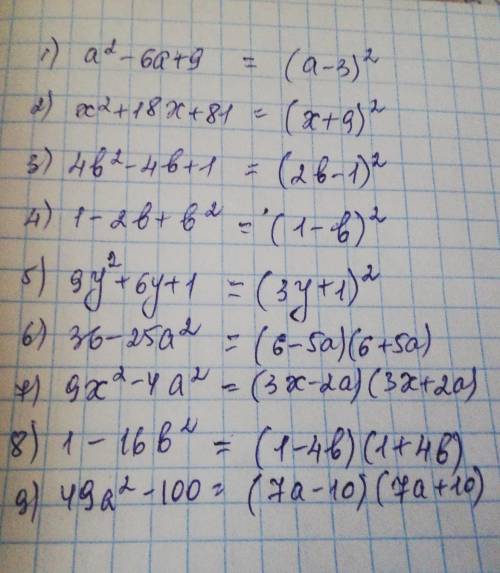 1) a² - 6a + 9 = (a - 3)²
2) x² + 18x + 81 = (x + 9)²
3) 4b² - 4b + 1 = (2b - 1)²
4) 1 - 2b + b² = (1 - b)²
5) 9y² + 6y + 1 = (3y + 1)²
6) 36 - 25a² = (6 - 5a)(6 + 5a)
7) 9x² - 4a² = (3x - 2a)(3x + 2a)
8) 1 - 16b² = (1 - 4b)(1 + 4b)
9) 49a² - 100 = (7a - 10)(7a + 10)